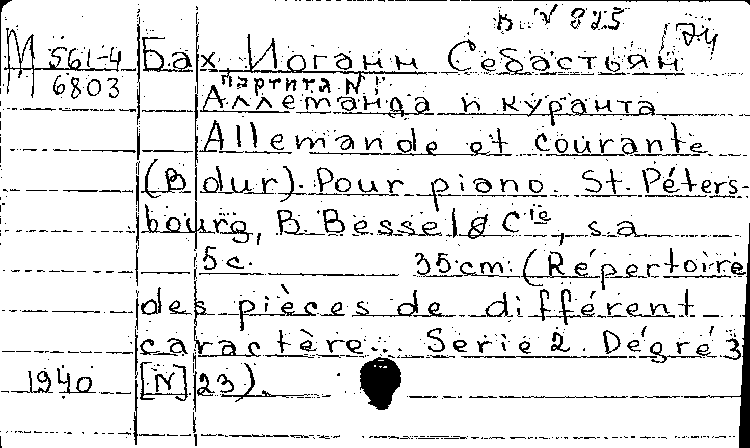 B. N 825
М 561-4 Бах, Иоганн Себастьян
6803 Партита N 1
Аллеманда и куранта
Allemande et courante
(B dur). Pour piano. St. Péters-
bourg, B. Bessel & Cie, s.a
5 c. 35 cm. (Répertoire
des pièces de différent
caractère... Serie 2. Dégré 3
1940 [N] 23).